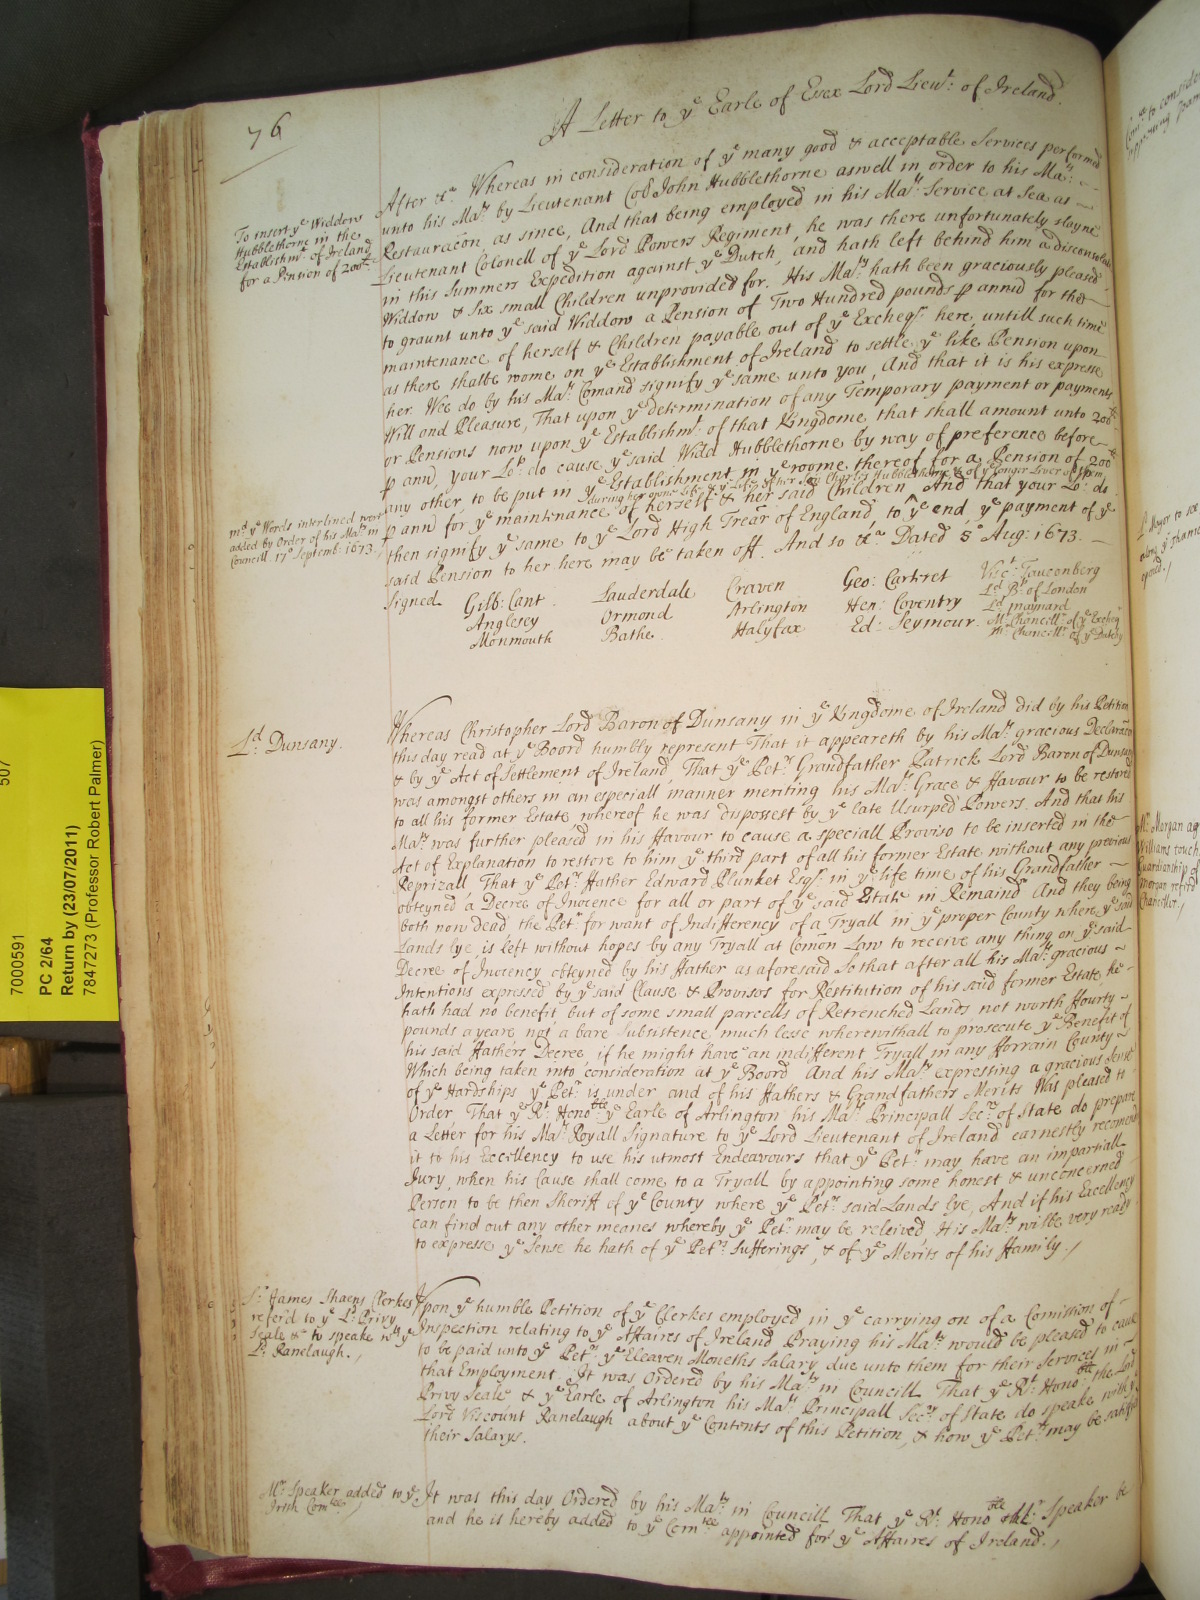 76
A Letter to ye Earle of Essex Lord Lieut: of Ireland.
To insert ye Widdow
Hubblethorne in the
Establishmt. of Ireland
for a Pension of 200li.
After &ca. Whereas in consideration of ye many good & acceptable Services performed
unto his Maty. by Lieutenant Coll John Hubblethorne aswell in order to his Mats:
Restauracon, as since, And that being employed in his Mats. Service at Sea as
Lieutenant Colonell of ye Lord Powers Regiment, he was there unfortunately slayne
in this Summers Expedition against ye Dutch, and hath left behind him a disconsolate
Widdow & Six small Children unprovided for. His Maty. hath been graciously pleased
to graunt unto ye said Widdow a Pension of Two Hundred pounds p annu for the
maintenance of herself & Children payable out of ye Excheqr. here, untill such time
as there shalbe roome on ye Establishment of Ireland to settle ye like Pension upon
her. Wee do by his Mats. Comand signify ye same unto you, And that it is his expresse
Will and Pleasure, That upon ye determination of any Temporary payment or payments
or Pensions now upon ye Establishmt. of that Kingdome, that shall amount unto 200li
p ann, your Lop. do cause ye said Widd Hubblethorne by way of preference before
any other to be put in ye Establishment in ye roome thereof for a Pension of 200li
during her owne Life & ye Life of her Son Charles Hubblethorne & of ye longer Liver of them
p ann for ye maintenance of herself & her said Children And that your Lo: do
then signify ye same to ye Lord High Treãr of England, to ye end ye payment of ye
said Pension to her here may be taken off. And so &ca. Dated 8o Aug: 1673.
md. ye Words interlined were
added by Order of his Maty. in
Councill 17o Septemb: 1673.
Signed
Gilb: Cant
Lauderdale
Craven
Geo: Carteret
Visct: Fauconberg
Anglesey
Ormond
Arlington
Hen: Coventry
Ld. Bp. of London
Monmouth
Bathe
Halyfax
Ed: Seymour
Ld. Maynard
Mr. Chancellr. of ye Excheqr
Mr. Chancellr. of ye Dutchy
Ld. Dunsany.
Whereas Christopher Lord Baron of Dunsany in ye Kingdome of Ireland did by his Petition
this day read at ye Boord humbly represent That it appeareth by his Mats. gracious Declaracon
& by ye Act of Settlement of Ireland, That ye Petrs. Grandfather Patrick Lord Baron of Dunsany
was amongst others in an especiall manner meriting his Mats. Grace & Favour to be restored
to all his former Estate whereof he was dispossest by ye late Usurped Powers. And that his
Maty. was further pleased in his Favour to cause a speciall Proviso to be inserted in the
Act of Explanation to restore to him ye third part of all his former Estate without any previous
Reprizall, That ye Petrs. Father Edward Plunket Esqr. in ye life time of his Grandfather
obteyned a Decree of Inocence for all or part of ye said Estate in Remaindr. And they being
both now dead the Petr. for want of Indifferency of a Tryall in ye proper County where ye said
Lands lye is left without hopes by any Tryall at Comon Law to receive any thing on ye said
Decree of Inocency obteyned by his Father as aforesaid So that after all his Mats. gracious
Intentions expressed by ye said Clause & Provisos for Restitution of his said former Estate, he
hath had no benefit, but of some small parcells of Retrenched Lands not worth Fourty
pounds a yeare, not a bare subsistence, much lesse wherewithall to prosecute ye Benefit of
his said Fathers Decree, if he might have an indifferent Tryall in any Forrain County
Which being taken into consideration at ye Boord And his Maty. expressing a gracious Sense
of ye Hardships ye Petr. is under and of his Fathers & Grandfathers Merits Was pleased to
Order That ye Rt. Honoble ye Earle of Arlington his Mats. Principall Secry. of State do prepare
a Letter for his Mats. Royall Signature to ye Lord Lieutenant of Ireland earnestly recomend
it to his Excellency to use his utmost Endeavours that ye Petr. may have an impartiall
Jury, when his Cause shall come to a Tryall by appointing some honest & unconcerned
Person to be then Sheriff of ye County where ye Petrs. said Lands lye, And if his Excellency
can find out any other meanes whereby ye Petr. may be releived, His Maty. wilbe very ready
to expresse ye Sense he hath of ye Petrs. Sufferings, & of ye Merits of his Family.
Sr. James Shaens Clerkes
referd to ye Ld. Privy
Seale &c to speake wth. ye
Ld. Ranelaugh.
Upon ye humble Petition of ye Clerkes employed in ye carrying on of a Comission of
Inspection relating to ye Affaires of Ireland Praying his Maty. would be pleased to cause
to be paid unto ye Petrs. ye Eleaven Moneths Salary due unto them for their Services in
that Employment, It was Ordered by his Maty. in Councill That ye Rt. Honoble the Lord
Privy Seale & ye Earle of Arlington his Mats. Principall Secry. of State do speake with ye
Lord Viscount Ranelaugh about ye Contents of this Petition, & how ye Petrs. may be satisfyd
their Salarys.
Mr. Speaker added to ye
Irish Comtee.
It was this day Ordered by his Maty. in Councill That ye Rt. Honoble Mr. Speaker be
and he is hereby added to ye Comtee appointed for ye Affaires of Ireland.
7000591
507
PC 2/64
Return by (23/07/2011)
7847273 (Professor Robert Palmer)
to consider
Ld. Mayor to
Mr. Morgan
Williams touch.
Guardianship of
Morgan referd
Chancellor.